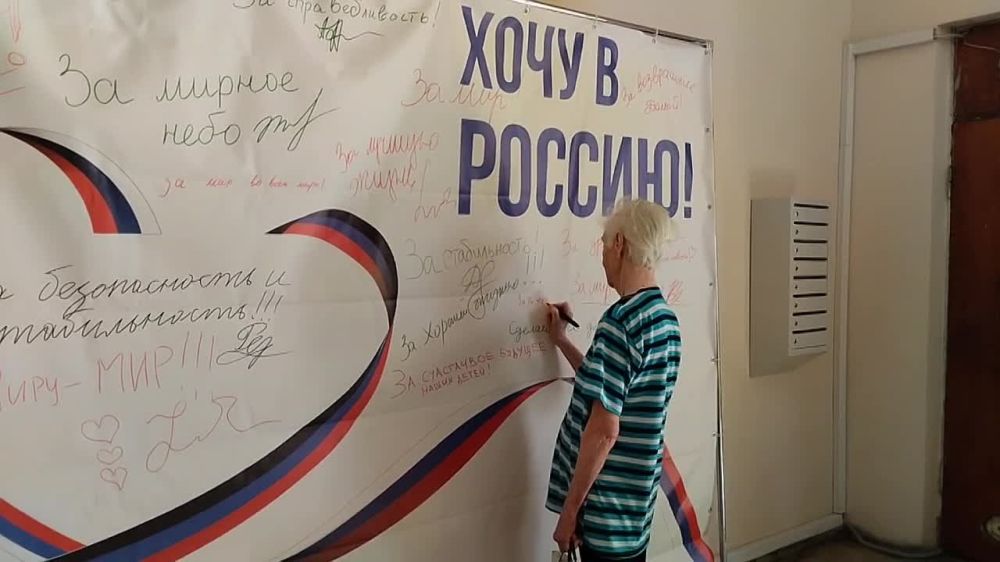 За справедливость!
ХОЧУ В
РОССИЮ!
За мирное
небо
За мир
За возвращение
домой!
За лучшую
жизнь!
За мир во всем мире!
За стабильность!
безопасность и
стабильность!!!
За хорошую жизнь!!!
Миру-МИР!!!
Сделай
ЗА СЧАСТЛИВОЕ БУДУЩЕЕ
НАШИХ ДЕТЕЙ!